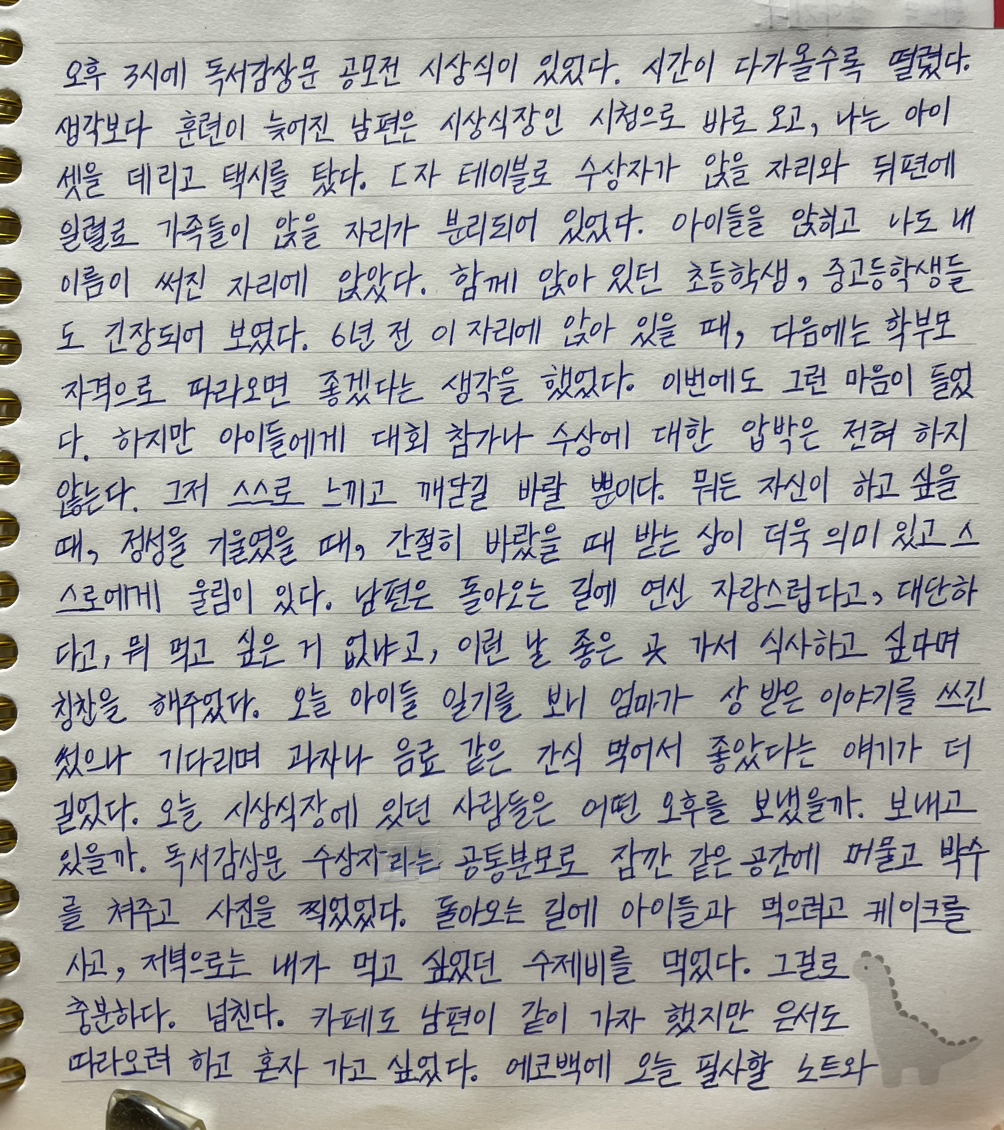 오후 3시에 독서감상문 공모전 시상식이 있었다. 시간이 다가올수록 떨렸다.
생각보다 훈련이 늦어진 남편은 시상식장인 시청으로 바로 오고, 나는 아이
셋을 데리고 택시를 탔다. ㄷ자 테이블로 수상자가 앉을 자리와 뒤편에
일렬로 가족들이 앉을 자리가 분리되어 있었다. 아이들을 앉히고 나도 내
이름이 써진 자리에 앉았다. 함께 앉아 있던 초등학생, 중고등학생들
도 긴장되어 보였다. 6년 전 이 자리에 앉아 있을 때, 다음에는 학부모
자격으로 따라오면 좋겠다는 생각을 했었다. 이번에도 그런 마음이 들었
다. 하지만 아이들에게 대회 참가나 수상에 대한 압박은 전혀 하지
않는다. 그저 스스로 느끼고 깨닫길 바랄 뿐이다. 뭐든 자신이 하고 싶을
때, 정성을 기울였을 때, 간절히 바랐을 때 받는 상이 더욱 의미 있고 스
스로에게 울림이 있다. 남편은 돌아오는 길에 연신 자랑스럽다고, 대단하
다고, 뭐 먹고 싶은 거 없냐고, 이런 날 좋은 곳 가서 식사하고 싶다며
칭찬을 해주었다. 오늘 아이들 일기를 보니 엄마가 상 받은 이야기를 쓰긴
썼으나 기다리며 과자나 음료 같은 간식 먹어서 좋았다는 얘기가 더
길었다. 오늘 시상식장에 있던 사람들은 어떤 오후를 보냈을까. 보내고
있을까. 독서감상문 수상자라는 공통분모로 잠깐 같은 공간에 머물고 박수
를 쳐주고 사진을 찍었었다. 돌아오는 길에 아이들과 먹으려고 케이크를
사고, 저녁으로는 내가 먹고 싶었던 수제비를 먹었다. 그걸로
충분하다. 넘친다. 카페도 남편이 같이 가자 했지만 은서도
따라오려 하고 혼자 가고 싶었다. 에코백에 오늘 필사할 노트와